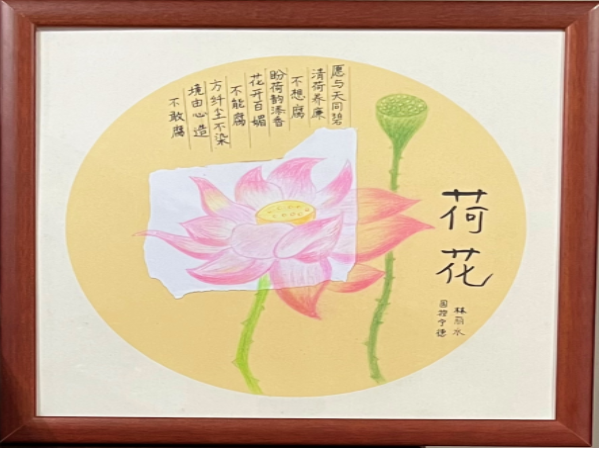 荷花
愿与天同碧
清荷养廉
不想腐
盼荷韵添香
花开百媚
不能腐
方纤尘不染
境由心造
不敢腐
国控宁德